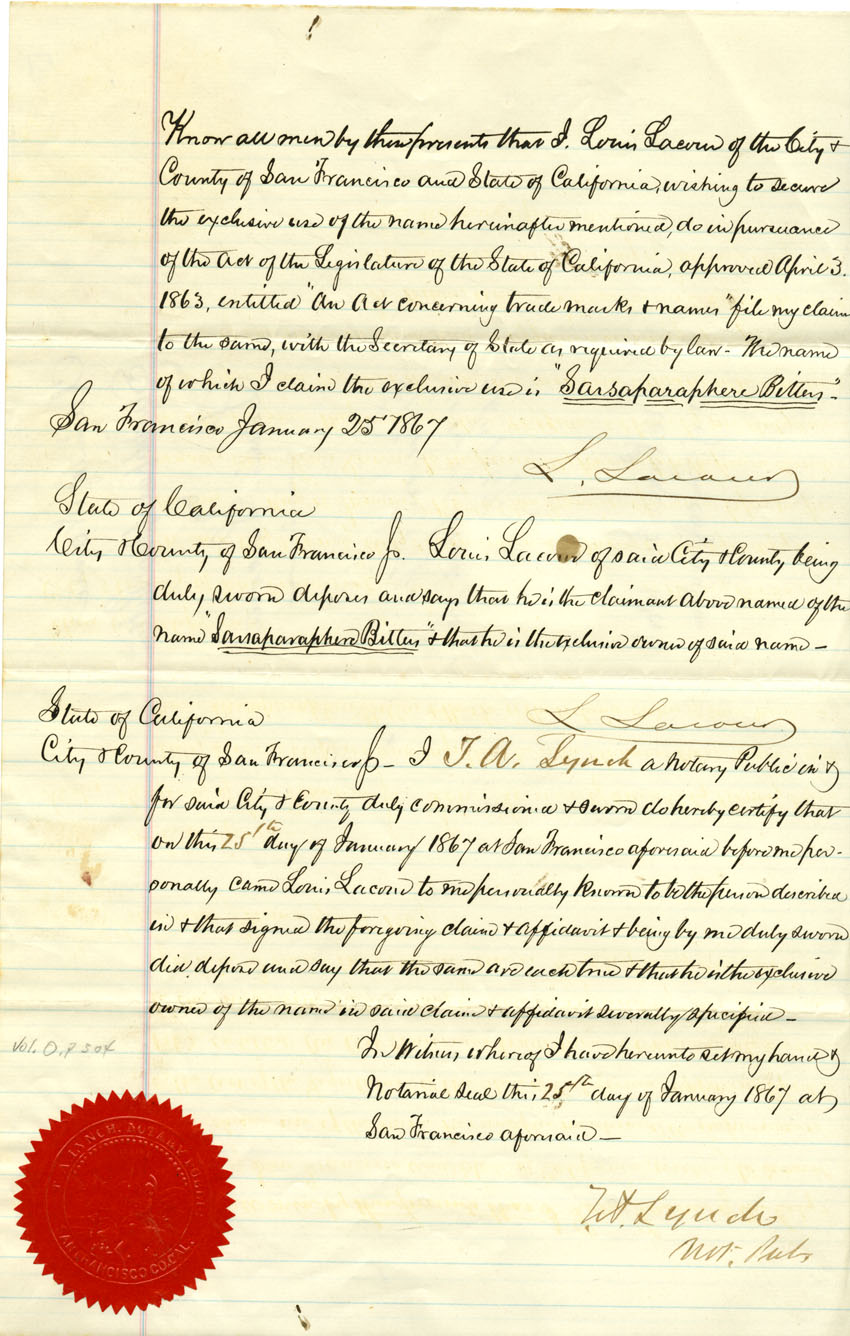 Know all men by these presents that I. Louis Lacour of the City &
County of San Francisco and State of California, wishing to secure
the exclusive use of the name hereinafter mentioned, do in pursuance
of the Act of the Legislature of the State of California, approved April 3.
1863, entitled "An Act concerning trade marks & names" file my claim
to the same, with the Secretary of State as required by law - The name
of which I claim the exclusive use is "Sarsaparaphere Bitters" -
San Francisco January 25 1867
L. Lacour
State of California
City & County of San Francisco Ss. Louis Lacour of said City & County being
duly sworn deposes and says that he is the claimant above named of the
name "Sarsaparaphere Bitters" & that he is the exclusive owner of said name -
L. Lacour
State of California
City & County of San Francisco Ss - I T. A. Lynch a Notary Public in &
for said City & County duly commissioned & sworn do hereby certify that
on this 25th day of January 1867 at San Francisco aforesaid before me per-
sonally came Louis Lacour to me personally known to be the person described
in & that signed the foregoing claim & affidavit & being by me duly sworn
did depose and say that the same are each true & that he is the exclusive
owner of the name in said claim & affidavit severally specified -
In Witness whereof I have hereunto set my hand &
Notarial seal this 25th day of January 1867 at
San Francisco aforesaid -
T.A. Lynch
Not. Pub.
T. A. LYNCH. NOTARY PUBLIC
SAN FRANCISCO CO. CAL.